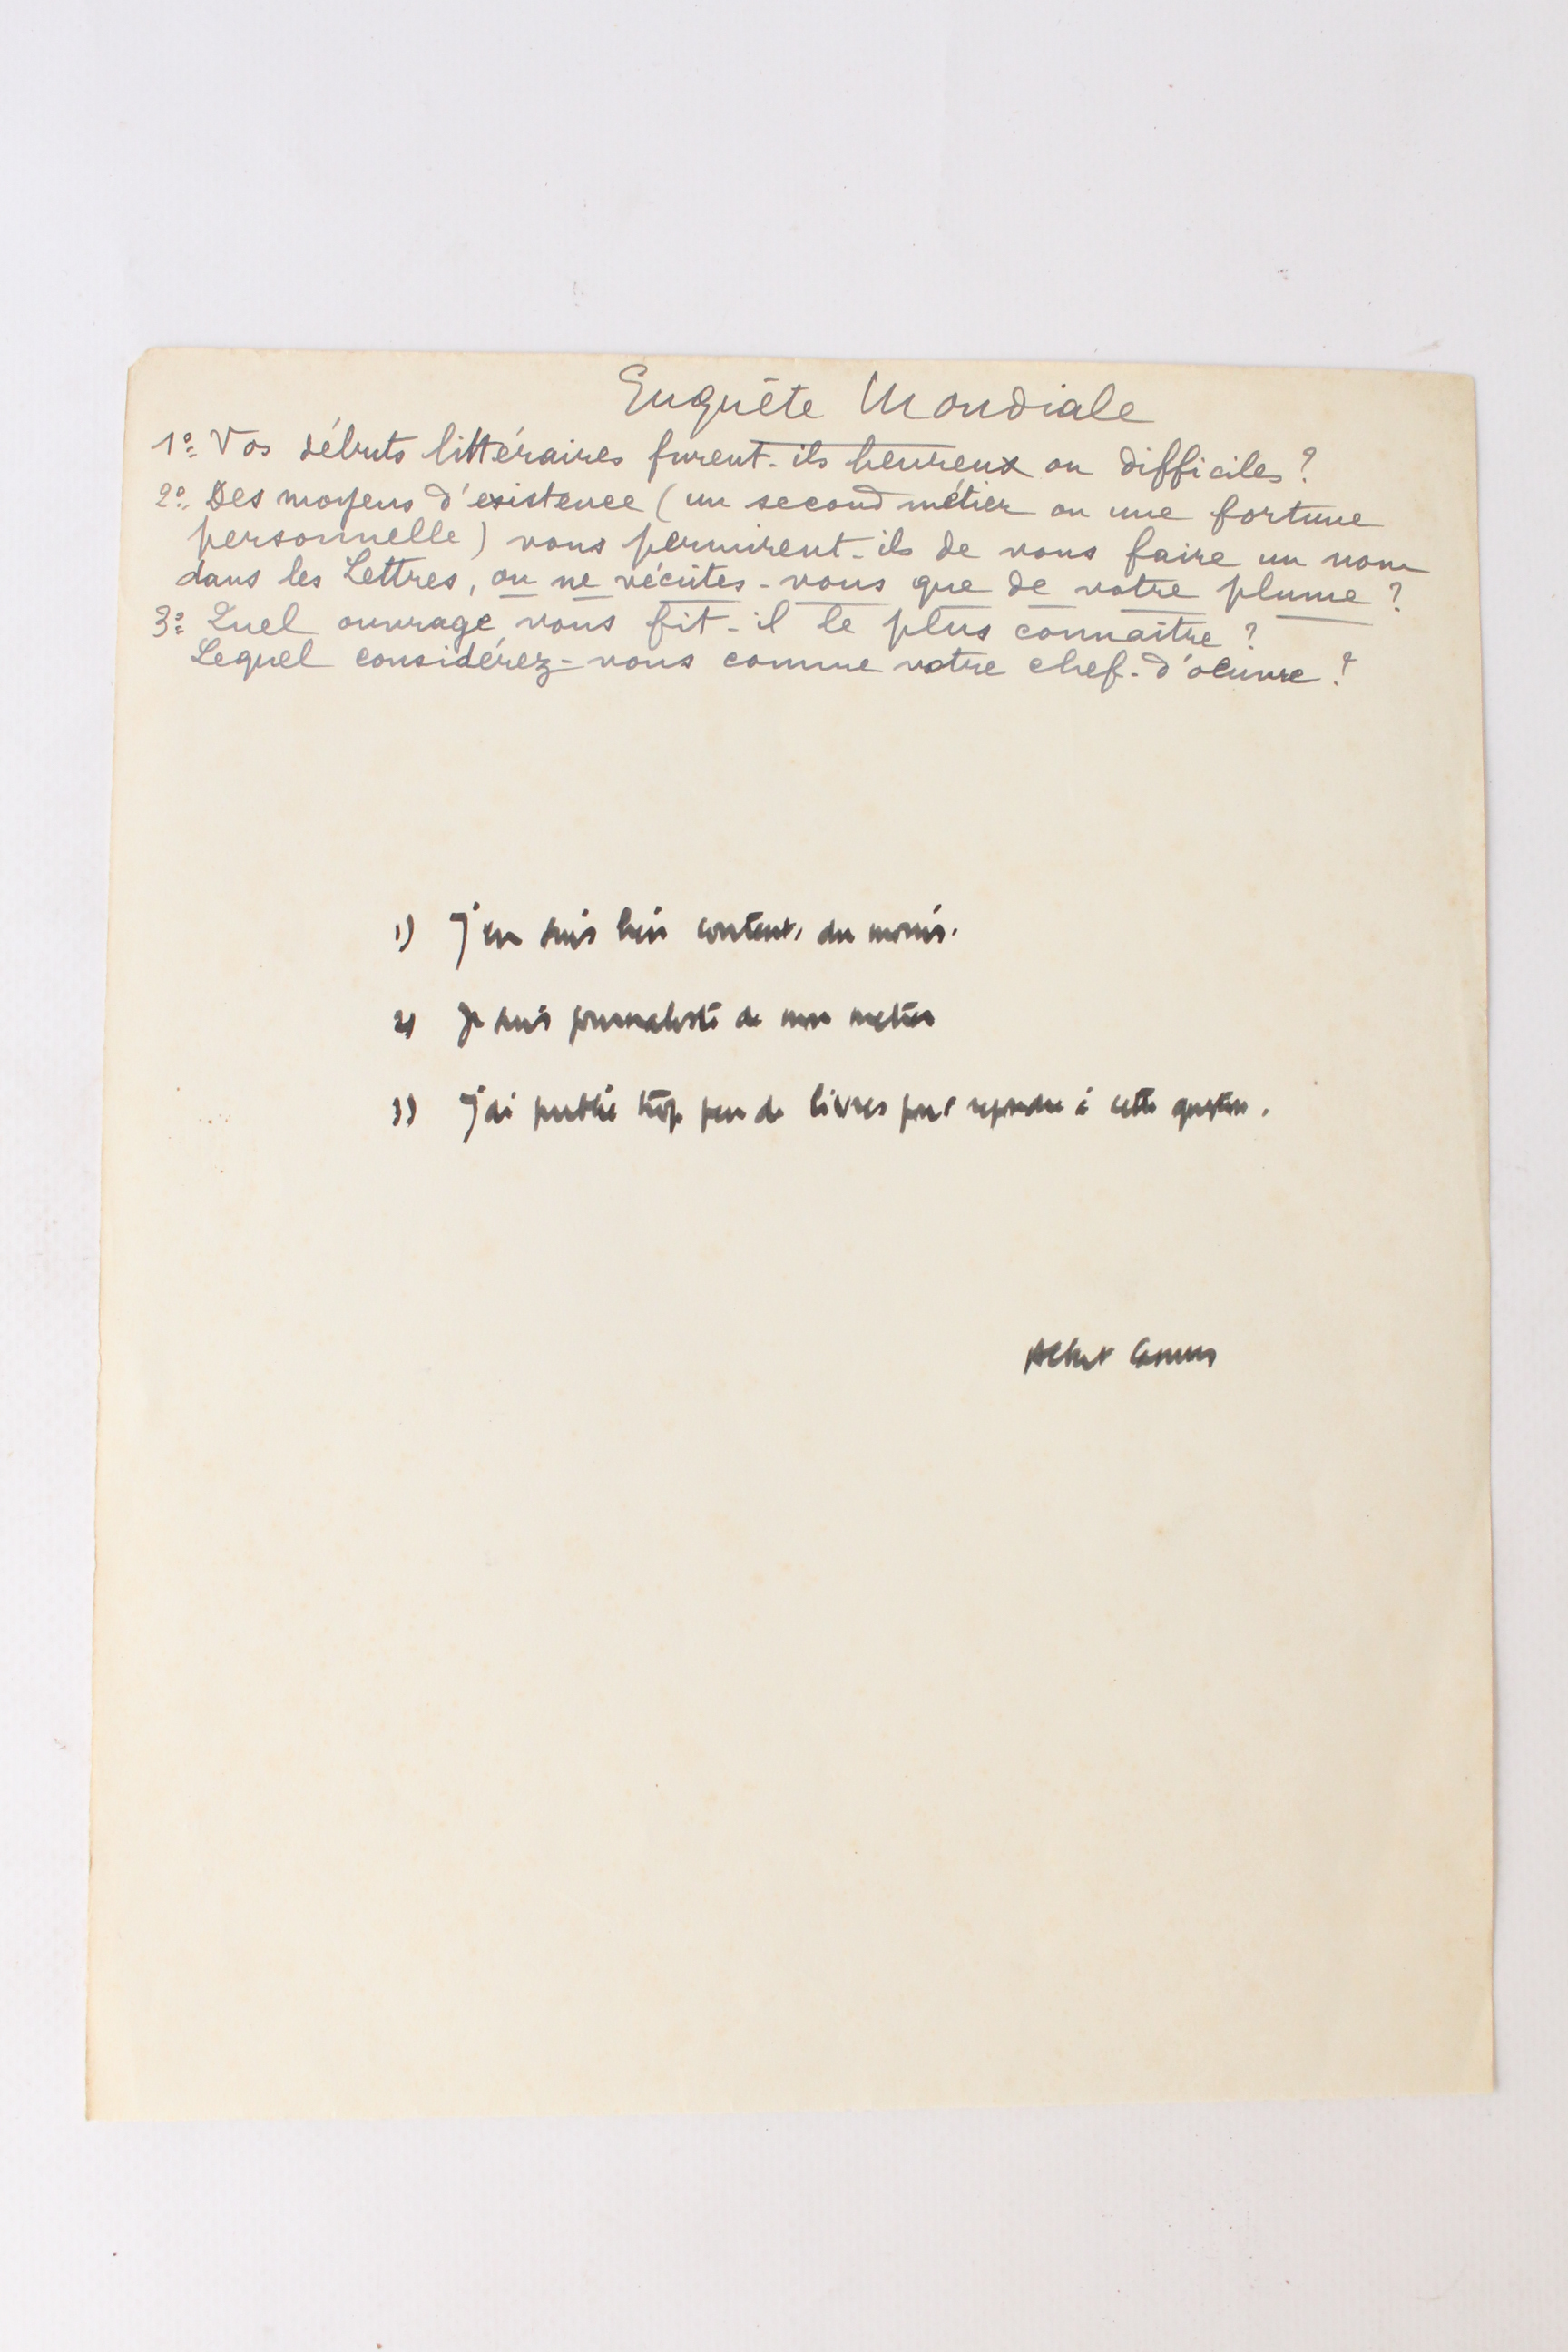 Enquête Mondiale
1º: Vos débuts littéraires furent-ils heureux ou difficiles?
2º: Des moyens d'existence (un second métier ou une fortune
personnelle) vous permirent-ils de vous faire un nom
dans les Lettres, ou ne vécûtes-vous que de votre plume?
3º: Quel ouvrage vous fit-il le plus connaître?
Lequel considérez-vous comme votre chef-d'œuvre?
1) J'en suis bien content, du moins.
2) Je suis journaliste de mon métier
3) J'ai publié trop peu de livres pour répondre à cette question.
Albert Camus